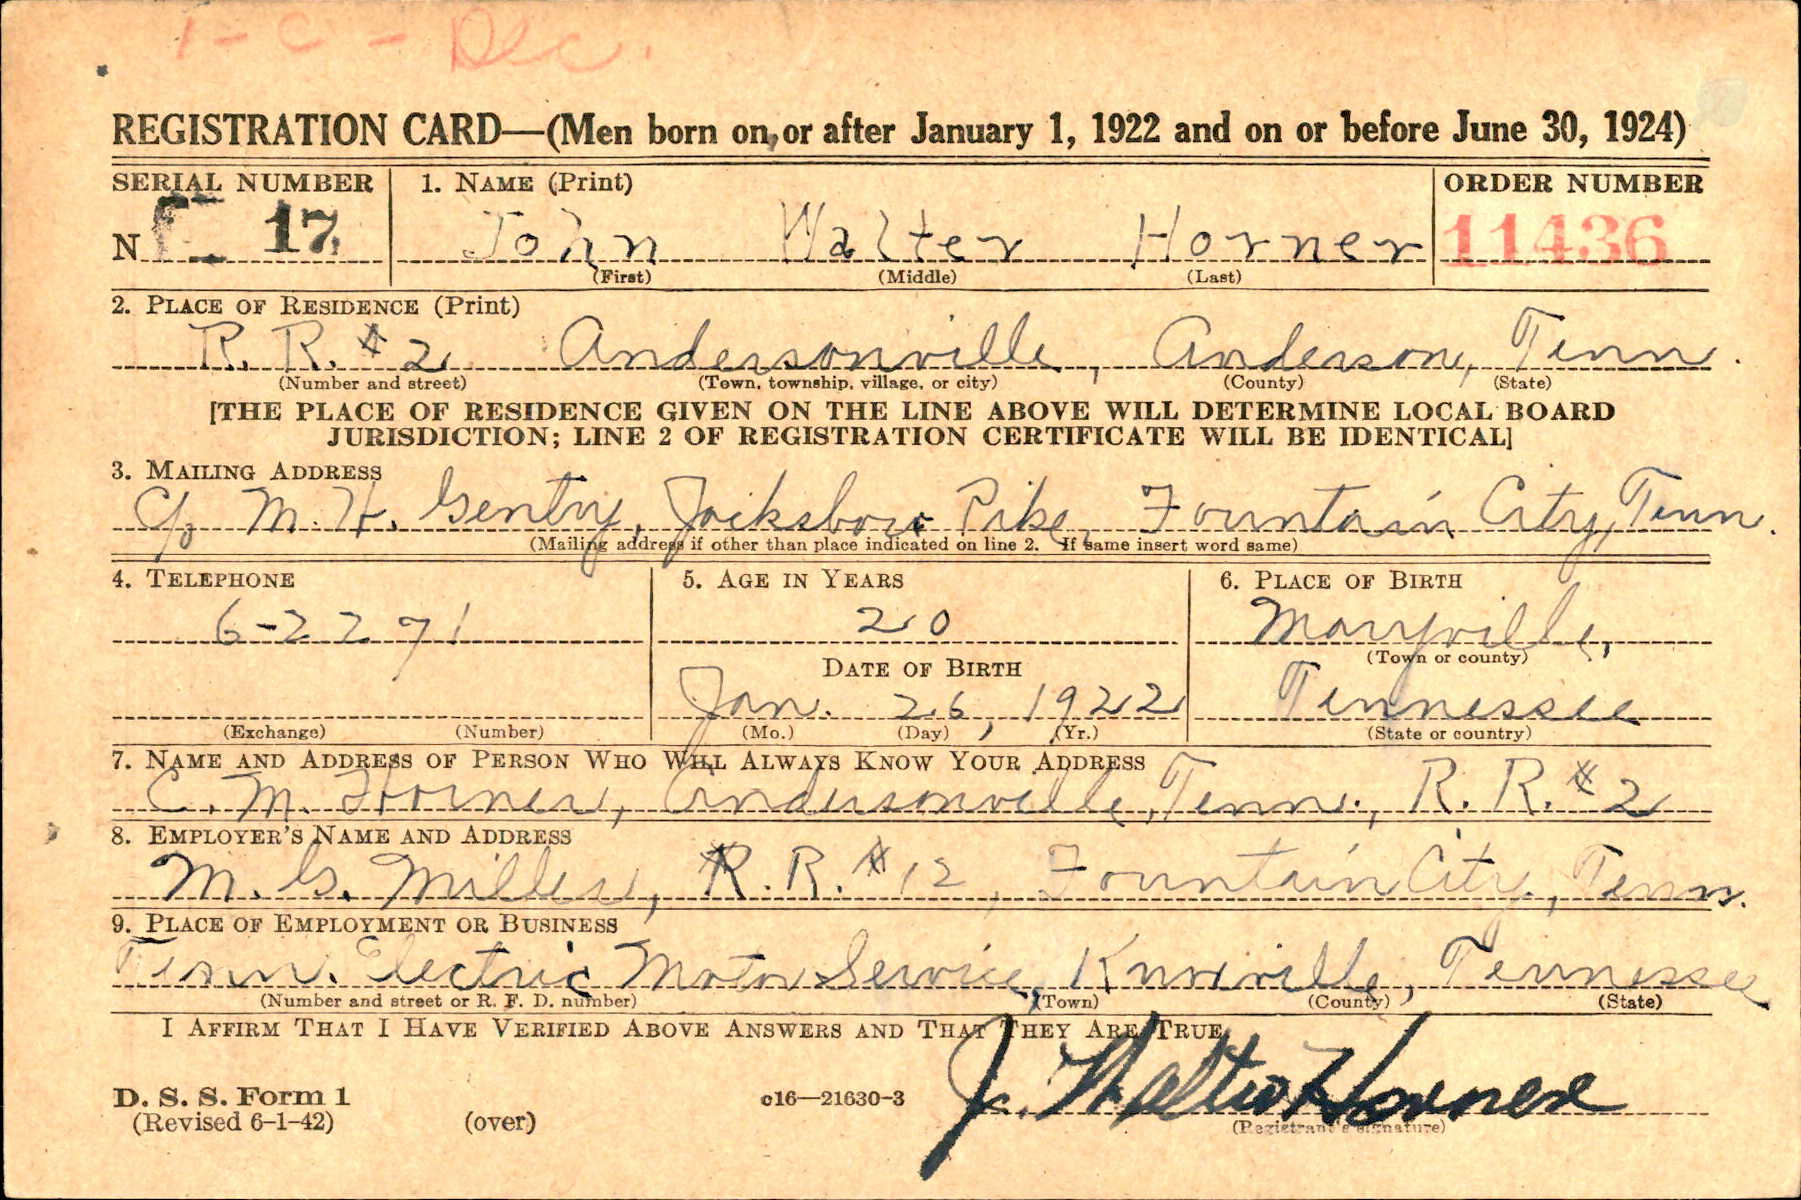 1-C- Dec.
REGISTRATION CARD—(Men born on or after January 1, 1922 and on or before June 30, 1924)
SERIAL NUMBER 1. NAME (Print) ORDER NUMBER
N 17 John Walter Horner 11436
(First) (Middle) (Last)
2. PLACE OF RESIDENCE (Print)
R. R. #2 Andersonville, Anderson, Tenn.
(Number and street) (Town, township, village, or city) (County) (State)
[THE PLACE OF RESIDENCE GIVEN ON THE LINE ABOVE WILL DETERMINE LOCAL BOARD
JURISDICTION; LINE 2 OF REGISTRATION CERTIFICATE WILL BE IDENTICAL]
3. MAILING ADDRESS
c/o M. H. Gentry, Jacksboro Pike, Fountain City, Tenn.
(Mailing address if other than place indicated on line 2. If same insert word same)
4. TELEPHONE 5. AGE IN YEARS 6. PLACE OF BIRTH
6-2271 20 Maryville,
(Town or county)
DATE OF BIRTH
Jan. 26, 1922 Tennessee
(Exchange) (Number) (Mo.) (Day) (Yr.) (State or country)
7. NAME AND ADDRESS OF PERSON WHO WILL ALWAYS KNOW YOUR ADDRESS
C. M. Horner, Andersonville, Tenn., R. R. #2
8. EMPLOYER'S NAME AND ADDRESS
M. G. Miller, R. R. #12, Fountain City, Tenn.
9. PLACE OF EMPLOYMENT OR BUSINESS
Tenn. Electric Motor Service, Knoxville, Tennessee
(Number and street or R. F. D. number) (Town) (County) (State)
I AFFIRM THAT I HAVE VERIFIED ABOVE ANSWERS AND THAT THEY ARE TRUE.
J. Walter Horner
D. S. S. Form 1 c16—21630-3
(Revised 6-1-42) (over) (Registrant's signature)